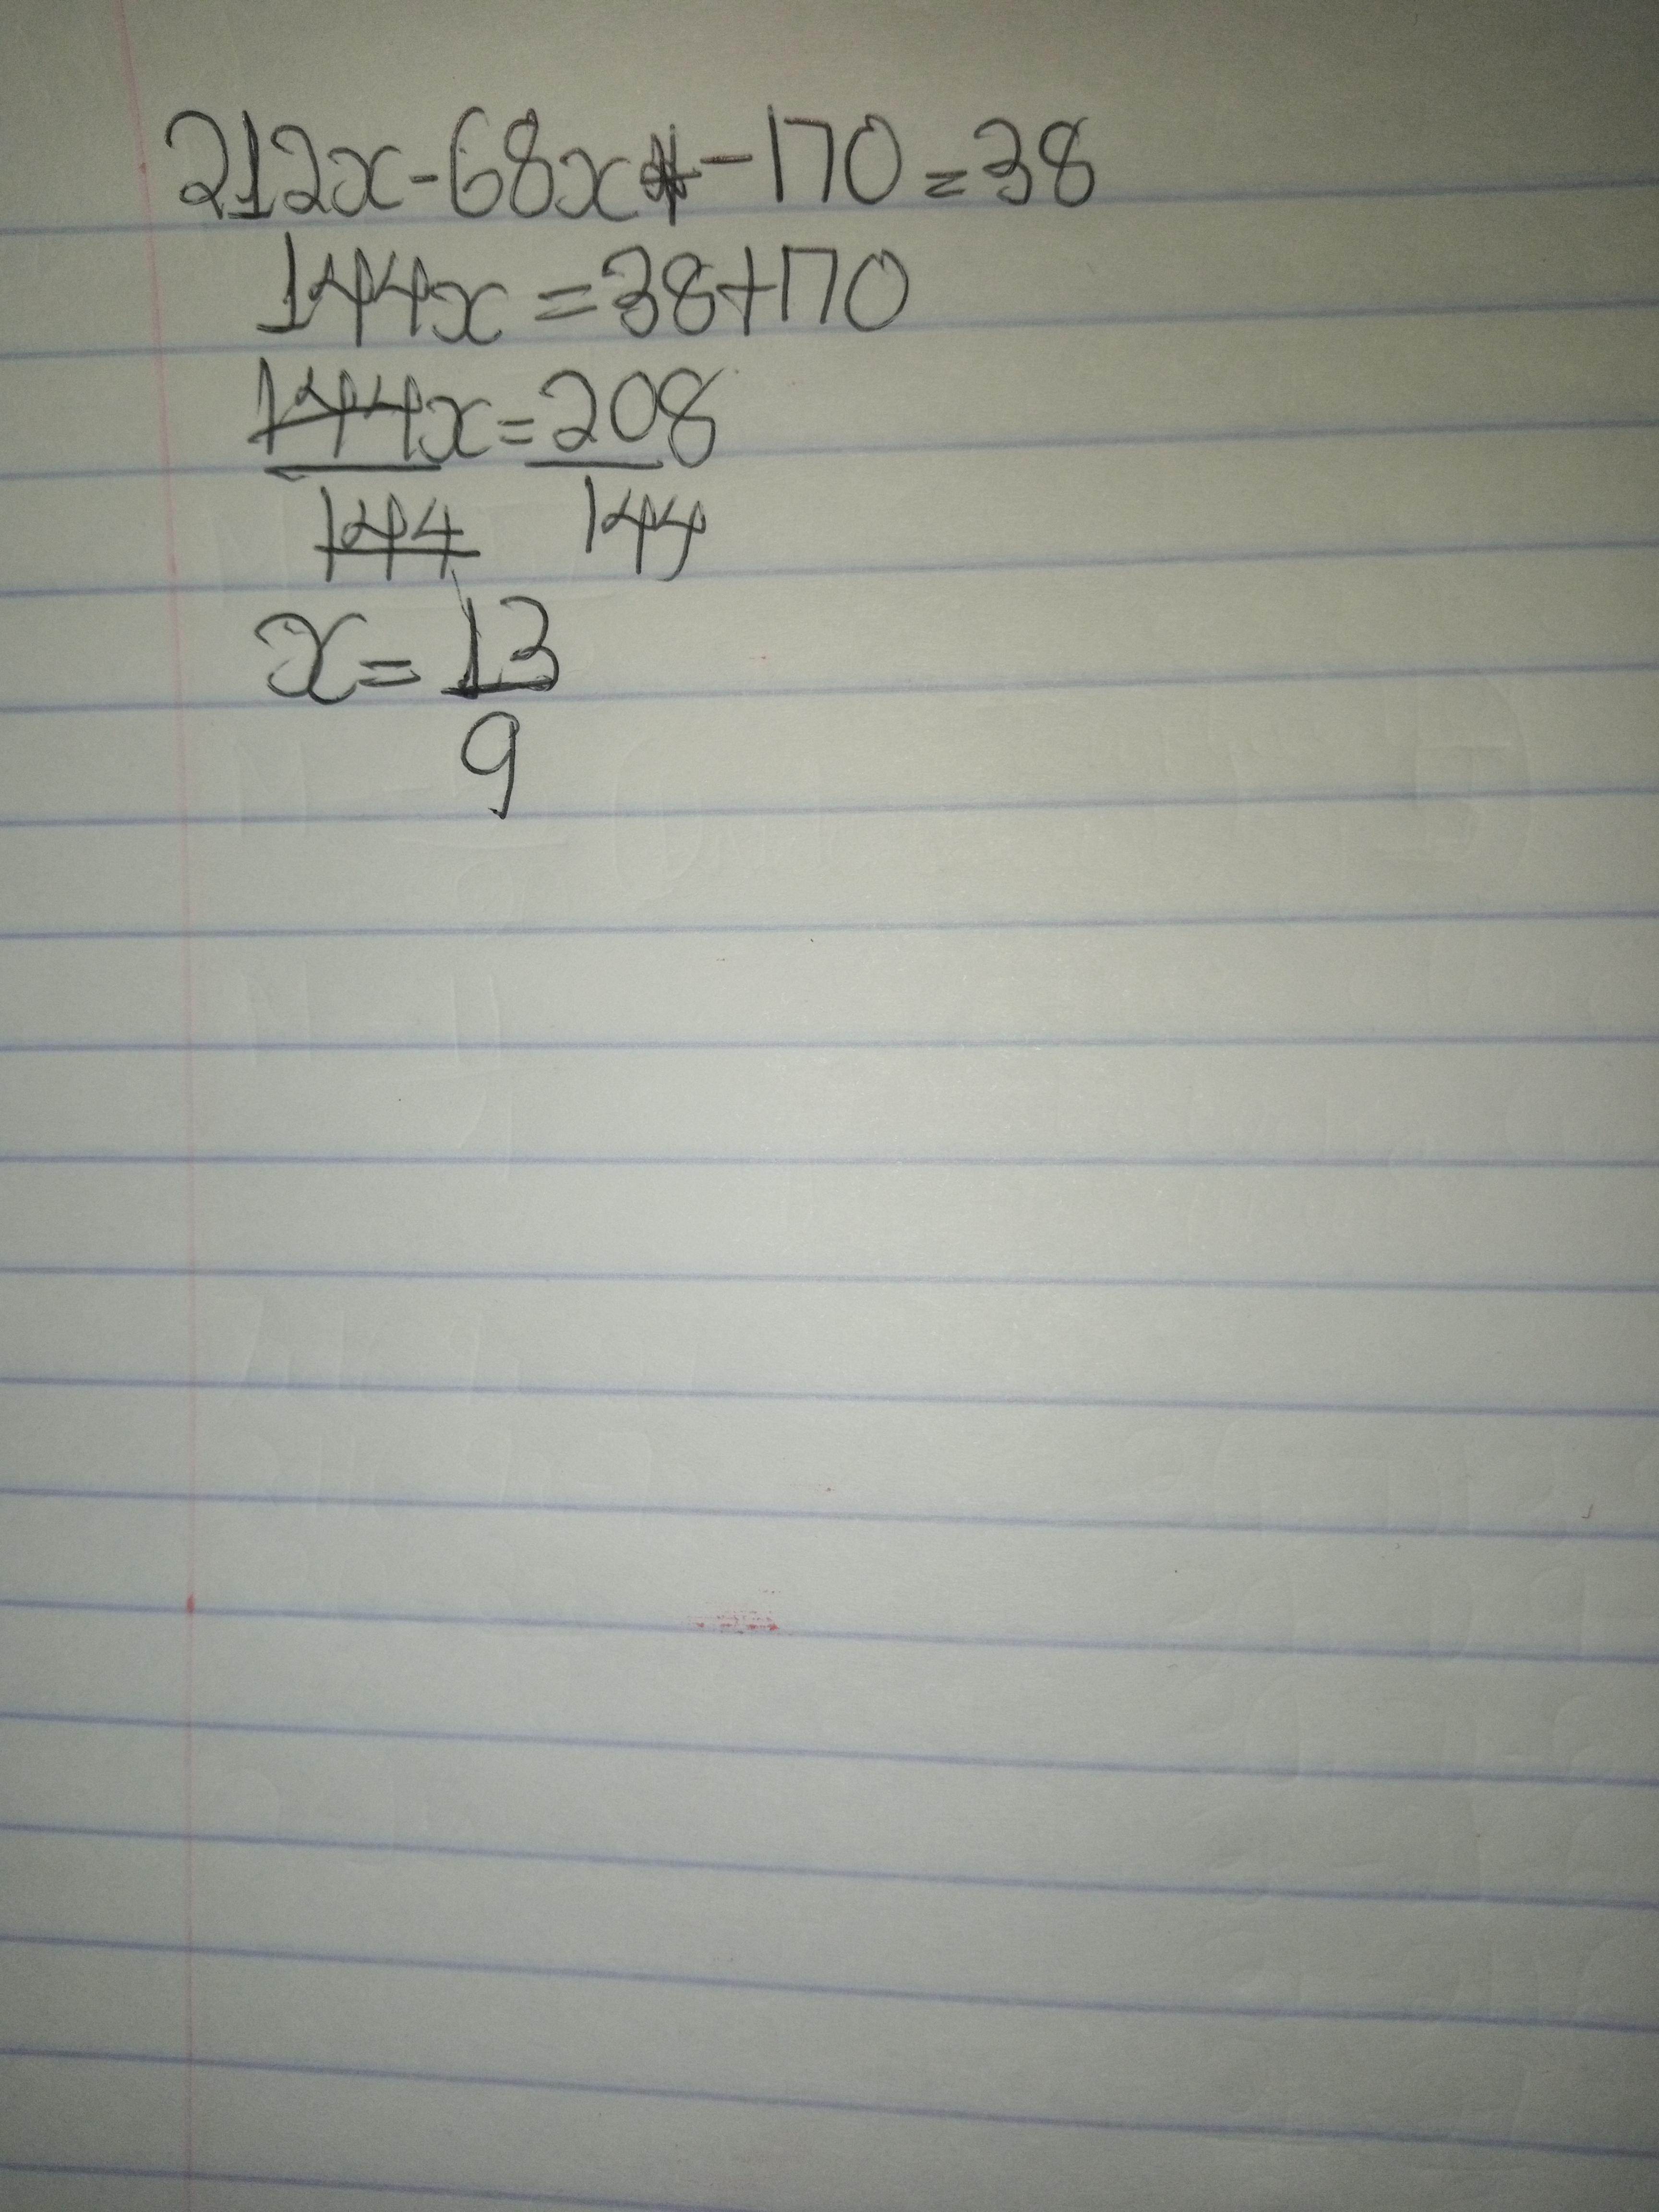 212x-68x-170=38
144x=38+170
144x=208
144 144
x=13
9